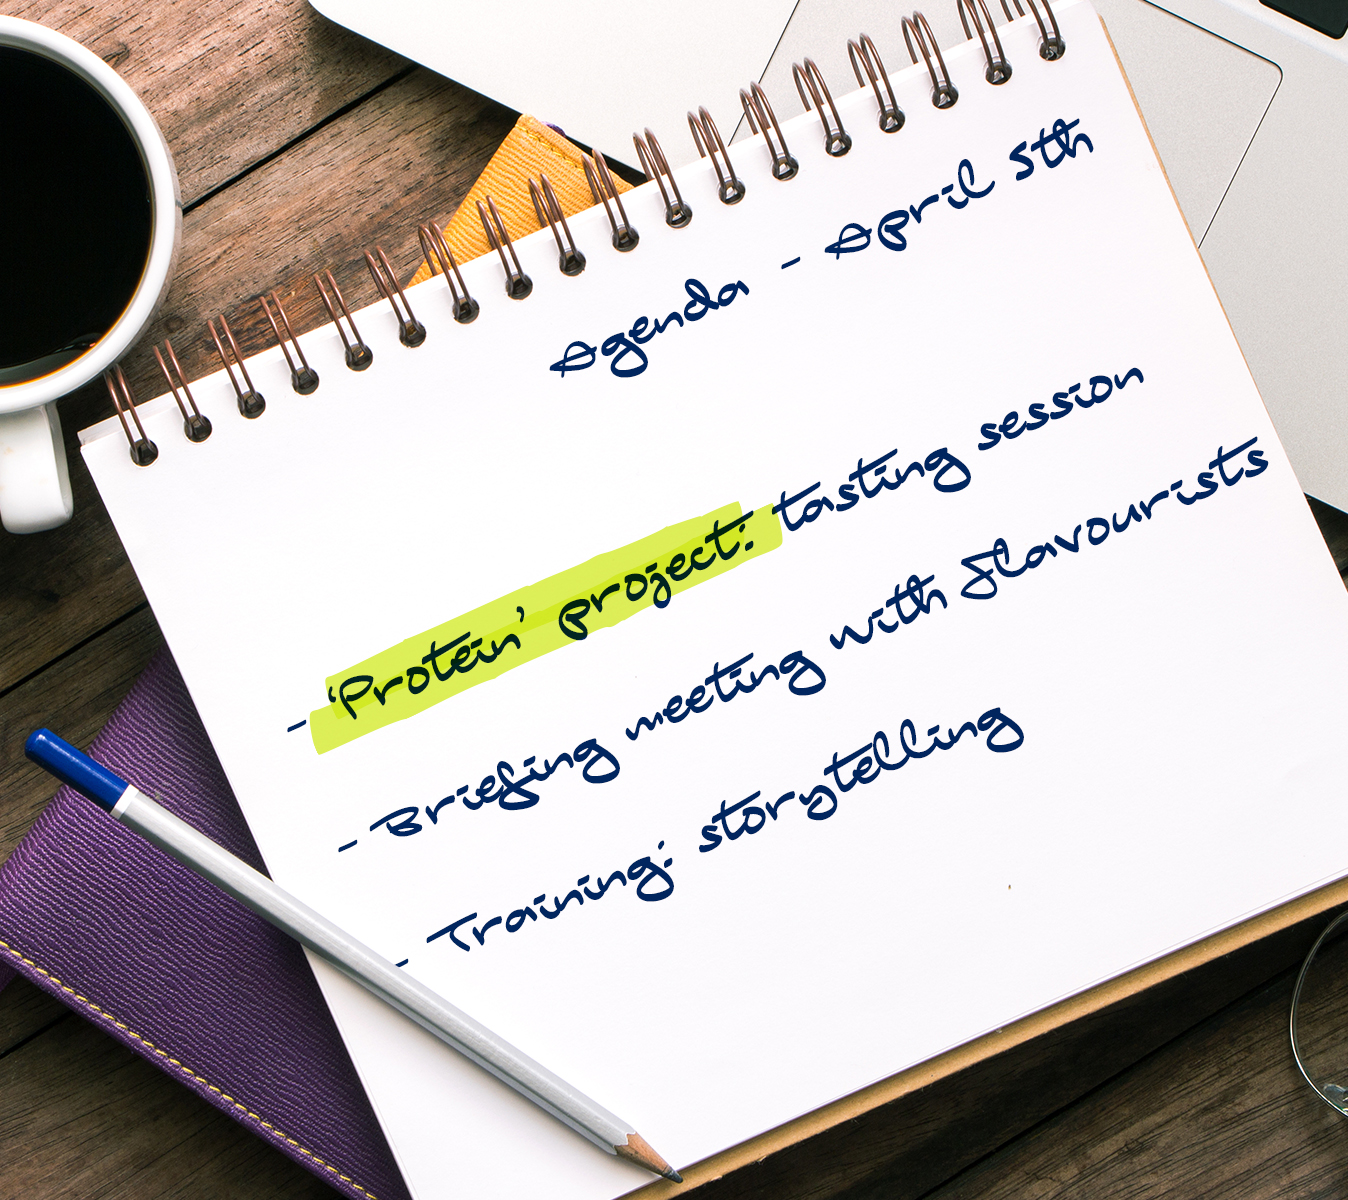 Agenda - April 5th
- 'Protein' project: tasting session
- Briefing meeting with flavourists
- Training: storytelling